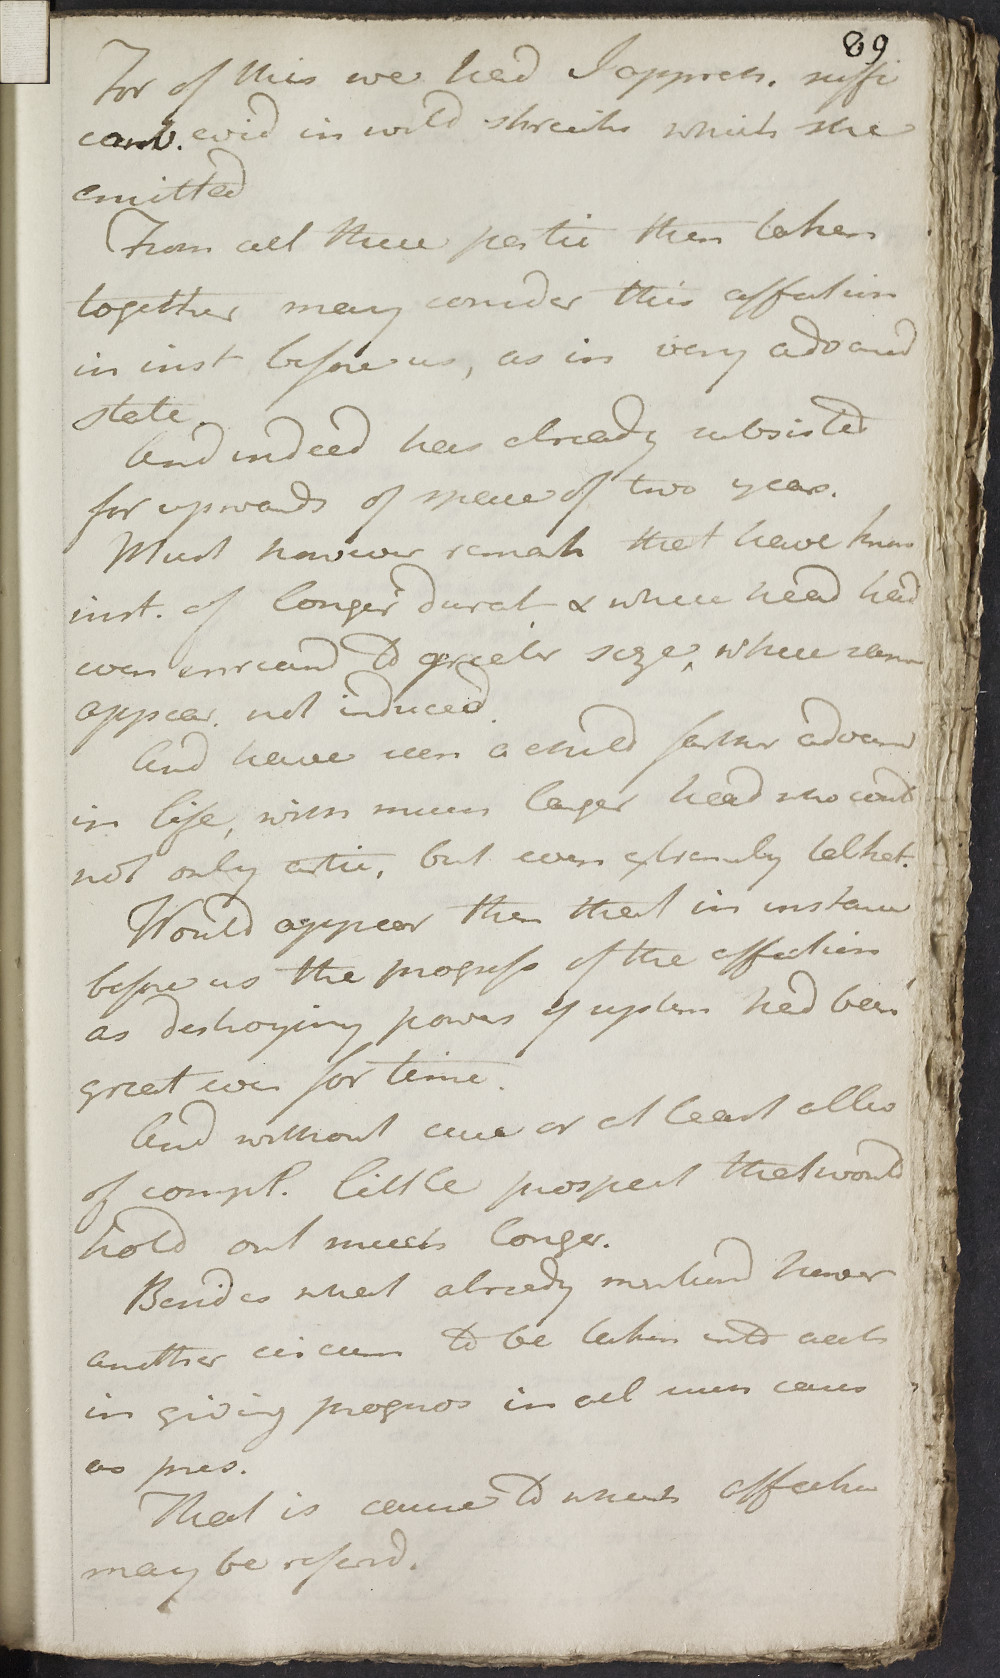 89
For of this we had I appreh. suffi
cent. evid in wild shrieks which she
emitted
From all these partic then taken
together may consider this affection
in inst before us, as in very advanced
state.
And indeed has already subsisted
for upwards of space of two years.
Must however remark that have known
inst. of longer durat & where head had
even increased to greater size, where same
appear. not induced.
And have seen a child farther advanced
in life, with much larger head who could
not only artic, but even extremely talkat.
Would appear then that in instance
before us the progress of the affection
as destroying powers of system had been
great even for time.
And without cure or at least allev
of compl. little prospect that would
hold out much longer.
Besides what already mentiond however
another circum to be taken into acct
in giving prognos in all such cases
as pres.
That is cause to which affection
may be referd.